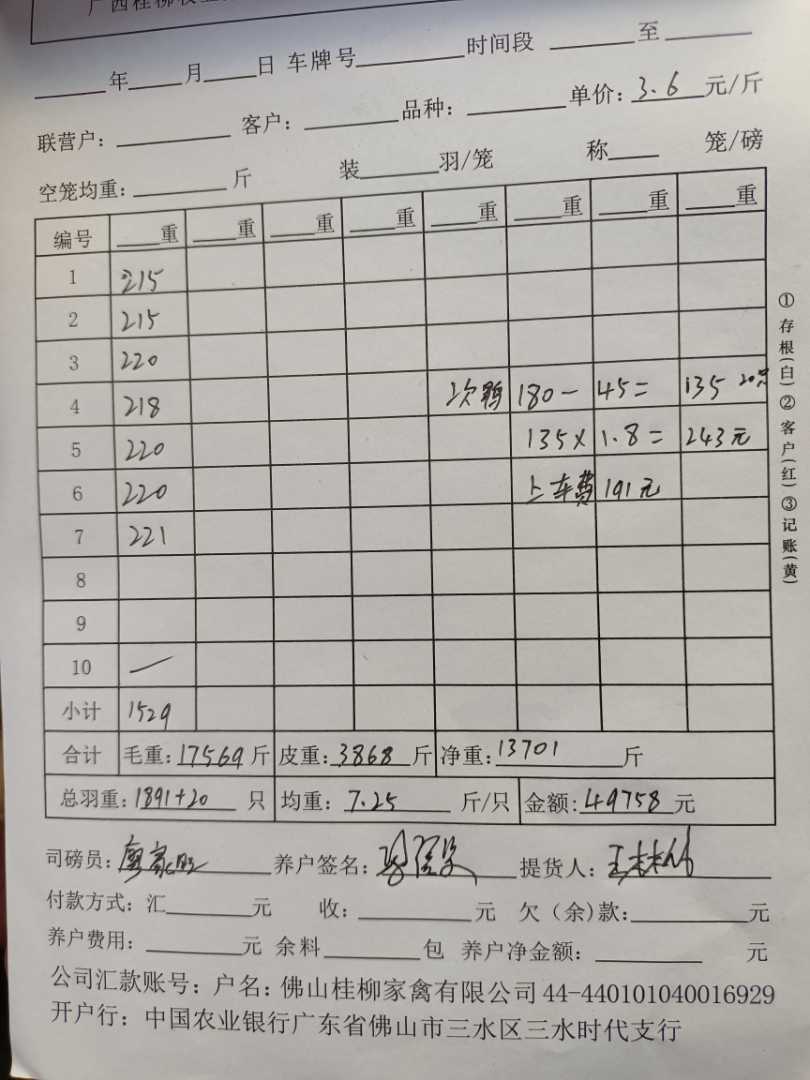 广西桂柳牧业
____年____月____日 车牌号________时间段______至______
联营户：________ 客户：________ 品种：________ 单价：3.6元/斤
空笼均重：________斤 装______羽/笼 称____笼/磅
编号 ____重 ____重 ____重 ____重 ____重 ____重 ____重 ____重
1 215
2 215
3 220
4 218 次鸭 180- 45= 135 20只
5 220 135× 1.8= 243元
6 220 上车费 191元
7 221
8
9
10 —
小计 1529
合计 毛重：17569斤 皮重：3868斤 净重：13701斤
总羽重：1891+20只 均重：7.25斤/只 金额：49758元
司磅员： 养户签名： 提货人：
付款方式：汇______元 收：________元 欠（余）款：________元
养户费用：________元 余料________包 养户净金额：________元
公司汇款账号：户名：佛山桂柳家禽有限公司 44-440101040016929
开户行：中国农业银行广东省佛山市三水区三水时代支行
①存根(白)②客户(红)③记账(黄)